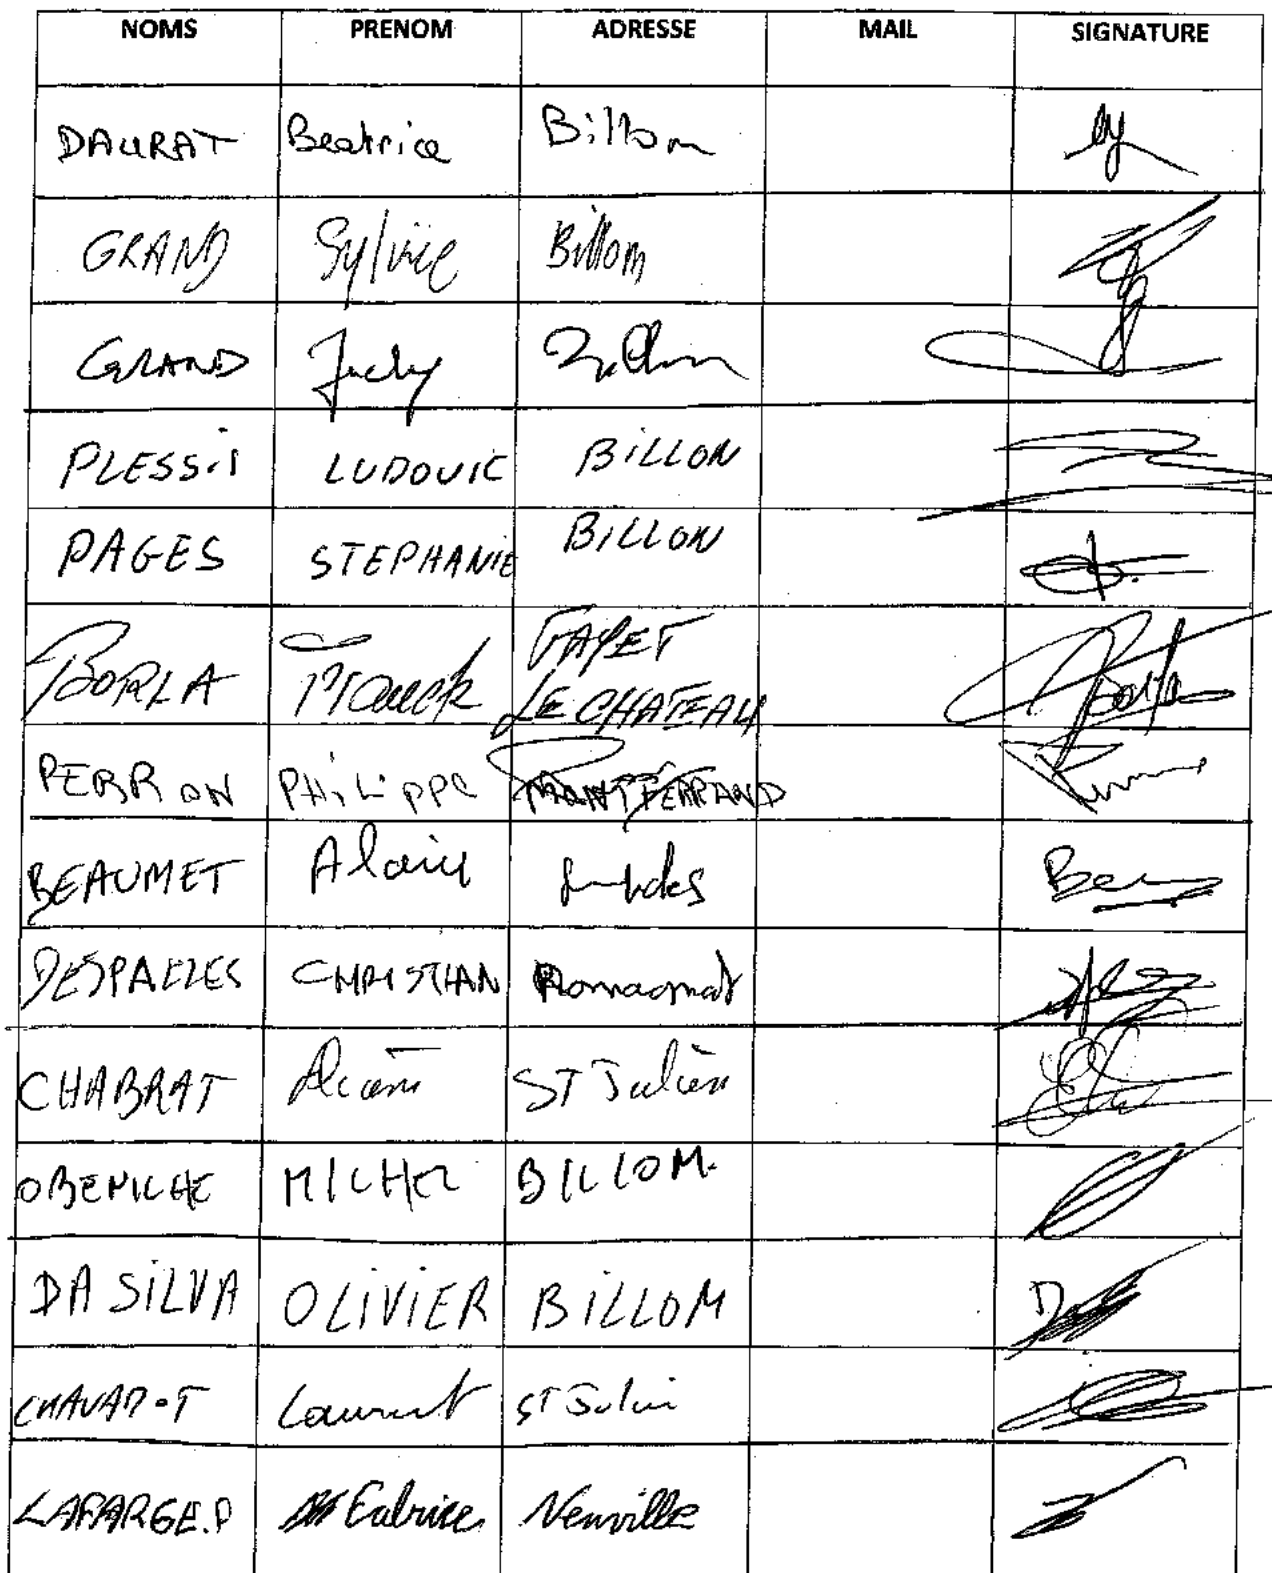 NOMS PRENOM ADRESSE MAIL SIGNATURE
DAURAT Beatrice Billom
GRAND Sylvie Billom
GRAND Billom
PLESSIS LUDOVIC BILLON
PAGES STEPHANIE BILLON
BORLA Franck FAYET
LE CHATEAU
PERRON PHILIPPE MONTFERRAND
BEAUMET Alain
CHRISTIAN Romagnat
CHABRAT ST Julien
MICHEL BILLOM.
DA SILVA OLIVIER BILLOM
Laurent ST Julien
LAFARGE.P Fabrice Neuville